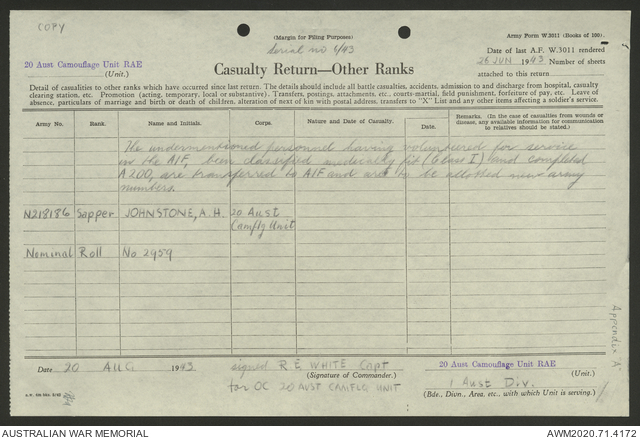 COPY
(Margin for Filing Purposes)
Army Form W.3011 (Books of 100).
Serial no 6/43
20 Aust Camouflage Unit RAE
(Unit.)
Date of last A.F. W.3011 rendered
26 JUN 1943 Number of sheets
attached to this return
Casualty Return—Other Ranks
Detail of casualties to other ranks which have occurred since last return. The details should include all battle casualties, accidents, admission to and discharge from hospital, casualty
clearing station, etc. Promotion (acting, temporary, local or substantive). Transfers, postings, attachments, etc., courts-martial, field punishment, forfeiture of pay, etc. Leave of
absence, particulars of marriage and birth or death of children, alteration of next of kin with postal address, transfers to "X" List and any other items affecting a soldier's service.
Army No. Rank. Name and Initials. Corps. Nature and Date of Casualty. Date. Remarks. (In the case of casualties from wounds or
disease, any available information for communication
to relatives should be stated.)
The undermentioned personnel having volunteered for service
in the AIF, been classified medically fit (Class I) and completed
A200, are transferred to AIF and are to be allotted new army
numbers.
N218186 Sapper JOHNSTONE, A.H. 20 Aust
Camflg Unit
Nominal Roll No 2959
Appendix "A"
Date 20 AUG 1943 signed R E WHITE Capt
(Signature of Commander.)
for OC 20 AUST CAMFLG UNIT
20 Aust Camouflage Unit RAE
(Unit.)
1 Aust Div.
(Bde., Divn., Area, etc., with which Unit is serving.)
AUSTRALIAN WAR MEMORIAL
AWM2020.71.4172